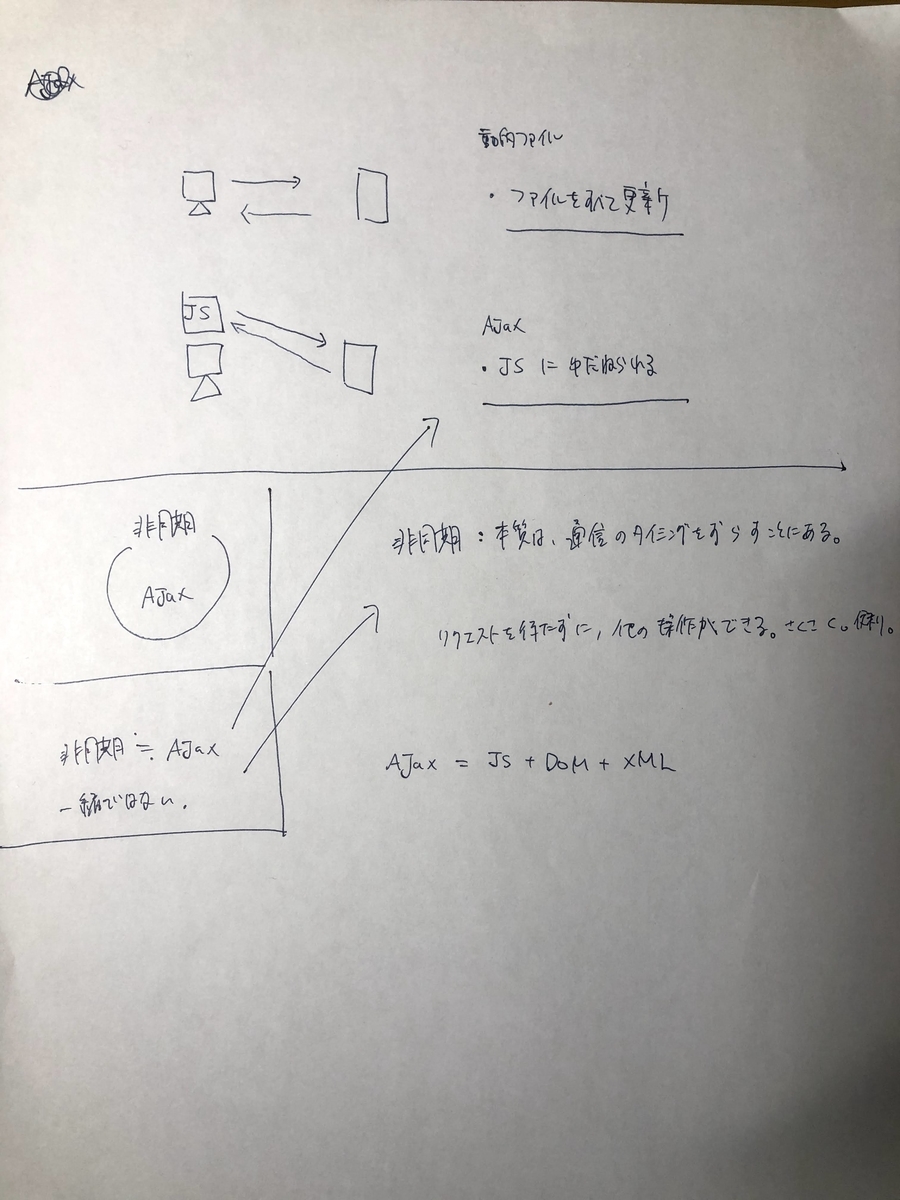 動的ファイル
・ファイルをすべて更新
JS
AJax
・JSにゆだねられる
非同期
AJax
非同期：本質は、通信のタイミングをずらすことにある。
リクエストを待たずに、他の操作ができる。さくさく。便利。
非同期 ≒ AJax
一緒ではない。
AJax = JS + DOM + XML